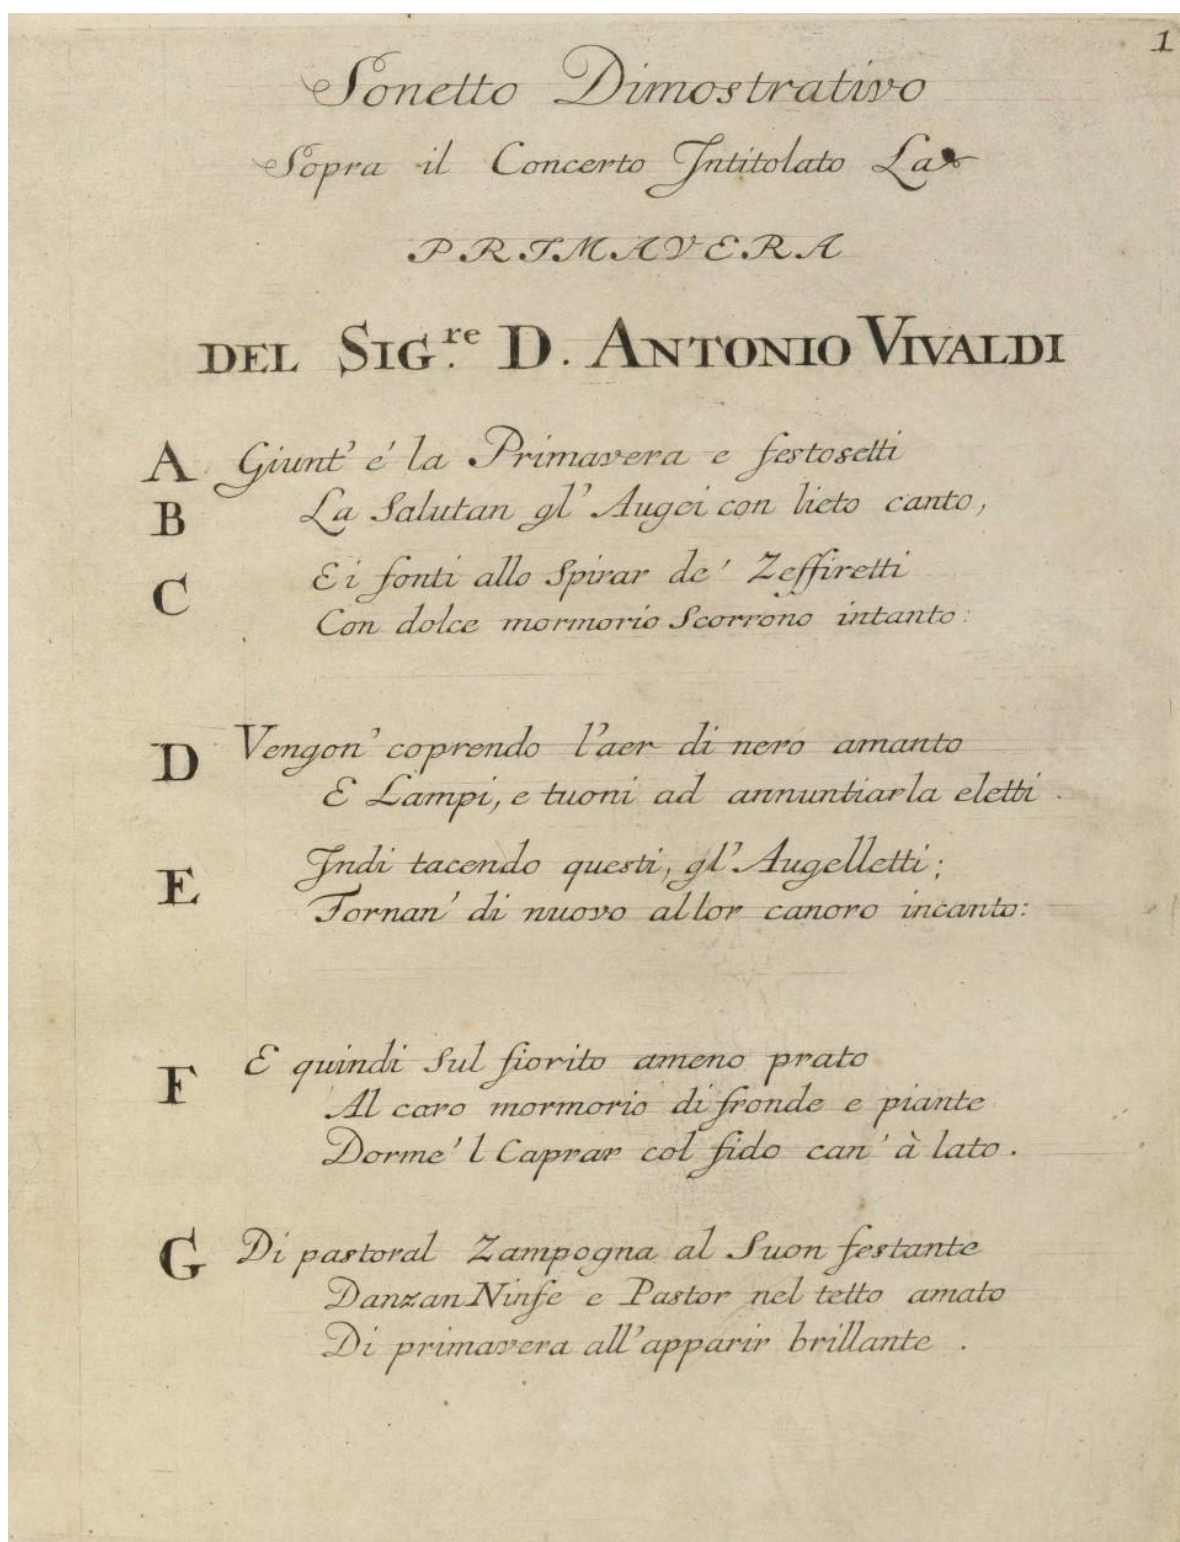 1
Sonetto Dimostrativo
Sopra il Concerto Intitolato La
PRIMAVERA
DEL SIG.re D. ANTONIO VIVALDI
A Giunt' é la Primavera e festosetti
B La Salutan gl' Augei con lieto canto,
C E i fonti allo Spirar de' Zeffiretti
Con dolce mormorio Scorrono intanto:
D Vengon' coprendo l'aer di nero amanto
E Lampi, e tuoni ad annuntiarla eletti.
E Indi tacendo questi, gl' Augelletti;
Tornan' di nuovo al lor canoro incanto:
F E quindi Sul fiorito ameno prato
Al caro mormorio di fronde e piante
Dorme 'l Caprar col fido can' à lato.
G Di pastoral Zampogna al Suon festante
Danzan Ninfe e Pastor nel tetto amato
Di primavera all'apparir brillante.